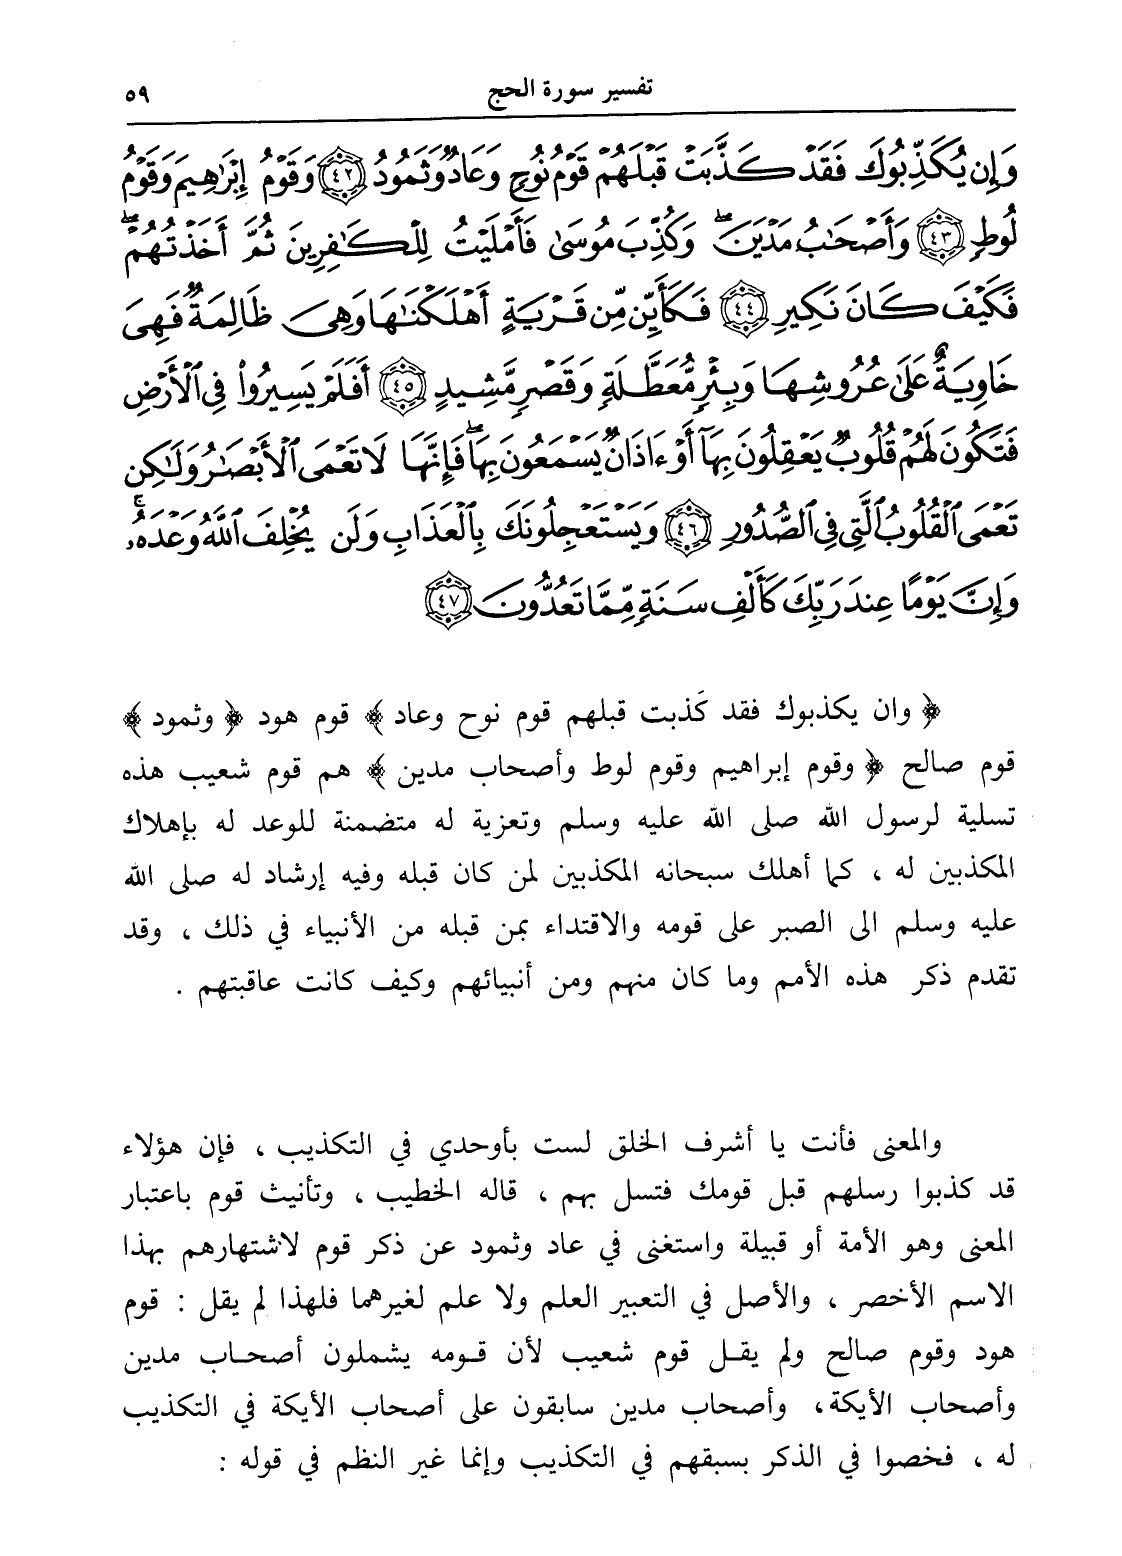 تفسير سورة الحج ٥٩
وَإِن يُكَذِّبُوكَ فَقَدْ كَذَّبَتْ قَبْلَهُمْ قَوْمُ نُوحٍ وَعَادٌ وَثَمُودُ ﴿٤٢﴾ وَقَوْمُ إِبْرَٰهِيمَ وَقَوْمُ
لُوطٍ ﴿٤٣﴾ وَأَصْحَٰبُ مَدْيَنَ ۖ وَكُذِّبَ مُوسَىٰ فَأَمْلَيْتُ لِلْكَٰفِرِينَ ثُمَّ أَخَذْتُهُمْ ۖ
فَكَيْفَ كَانَ نَكِيرِ ﴿٤٤﴾ فَكَأَيِّن مِّن قَرْيَةٍ أَهْلَكْنَٰهَا وَهِىَ ظَالِمَةٌ فَهِىَ
خَاوِيَةٌ عَلَىٰ عُرُوشِهَا وَبِئْرٍ مُّعَطَّلَةٍ وَقَصْرٍ مَّشِيدٍ ﴿٤٥﴾ أَفَلَمْ يَسِيرُوا۟ فِى ٱلْأَرْضِ
فَتَكُونَ لَهُمْ قُلُوبٌ يَعْقِلُونَ بِهَآ أَوْ ءَاذَانٌ يَسْمَعُونَ بِهَا ۖ فَإِنَّهَا لَا تَعْمَى ٱلْأَبْصَٰرُ وَلَٰكِن
تَعْمَى ٱلْقُلُوبُ ٱلَّتِى فِى ٱلصُّدُورِ ﴿٤٦﴾ وَيَسْتَعْجِلُونَكَ بِٱلْعَذَابِ وَلَن يُخْلِفَ ٱللَّهُ وَعْدَهُۥ ۚ
وَإِنَّ يَوْمًا عِندَ رَبِّكَ كَأَلْفِ سَنَةٍ مِّمَّا تَعُدُّونَ ﴿٤٧﴾
﴿ وان يكذبوك فقد كَذبت قبلهم قوم نوح وعاد ﴾ قوم هود ﴿ وثمود ﴾
قوم صالح ﴿ وقوم إبراهيم وقوم لوط وأصحاب مدين ﴾ هم قوم شعيب هذه
تسلية لرسول الله صلى الله عليه وسلم وتعزية له متضمنة للوعد له بإهلاك
المكذبين له ، كما أهلك سبحانه المكذبين لمن كان قبله وفيه إرشاد له صلى الله
عليه وسلم الى الصبر على قومه والاقتداء بمن قبله من الأنبياء في ذلك ، وقد
تقدم ذكر هذه الأمم وما كان منهم ومن أنبيائهم وكيف كانت عاقبتهم .
والمعنى فأنت يا أشرف الخلق لست بأوحدي في التكذيب ، فإن هؤلاء
قد كذبوا رسلهم قبل قومك فتسل بهم ، قاله الخطيب ، وتأنيث قوم باعتبار
المعنى وهو الأمة أو قبيلة واستغنى في عاد وثمود عن ذكر قوم لاشتهارهم بهذا
الاسم الأخصر ، والأصل في التعبير العلم ولا علم لغيرهما فلهذا لم يقل : قوم
هود وقوم صالح ولم يقل قوم شعيب لأن قومه يشملون أصحاب مدين
وأصحاب الأيكة، وأصحاب مدين سابقون على أصحاب الأيكة في التكذيب
له ، فخصوا في الذكر بسبقهم في التكذيب وإنما غير النظم في قوله :